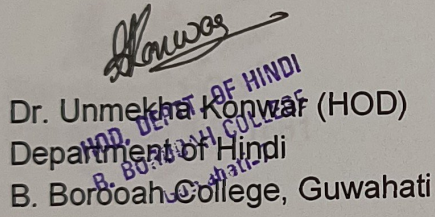 Konwar
HOD, DEPTT OF HINDI
B. BOROOAH COLLEGE
Guwahati-7
Dr. Unmekha Konwar (HOD)
Department of Hindi
B. Borooah College, Guwahati